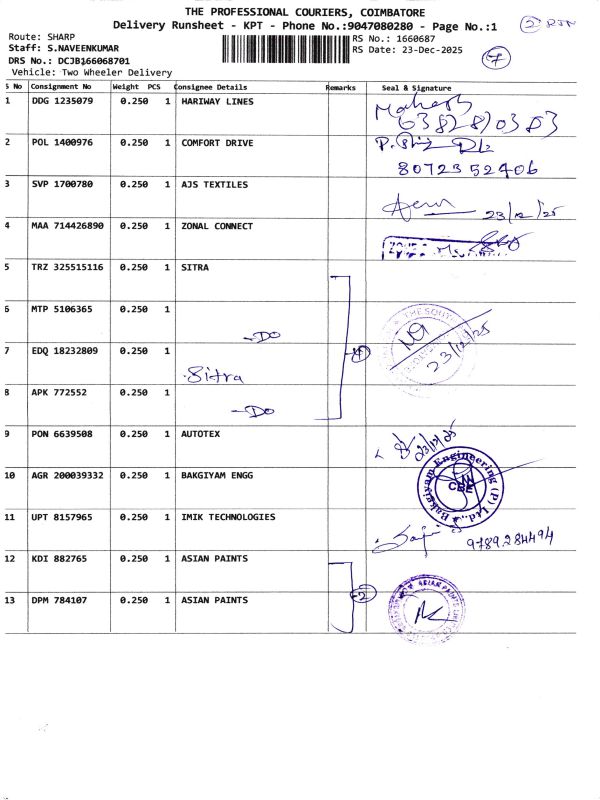 THE PROFESSIONAL COURIERS, COIMBATORE
Delivery Runsheet - KPT - Phone No.:9047080280 - Page No.:1
2 RTN
Route: SHARP
RS No.: 1660687
Staff: S.NAVEENKUMAR
RS Date: 23-Dec-2025
7
DRS No.: DCJB166068701
Vehicle: Two Wheeler Delivery
S No Consignment No Weight PCS Consignee Details Remarks Seal & Signature
1 DDG 1235079 0.250 1 HARIWAY LINES Mahesh
6382870383
2 POL 1400976 0.250 1 COMFORT DRIVE
8072352406
3 SVP 1700780 0.250 1 AJS TEXTILES
23/12/25
4 MAA 714426890 0.250 1 ZONAL CONNECT
5 TRZ 325515116 0.250 1 SITRA
6 MTP 5106365 0.250 1
-DO
THE SOUTH
23/12/25
7 EDQ 18232809 0.250 1
-4
Sitra
8 APK 772552 0.250 1
-DO
9 PON 6639508 0.250 1 AUTOTEX
23/12/25
10 AGR 200039332 0.250 1 BAKGIYAM ENGG
Bakgiyam Engineering (P) Ltd.,
CBE
11 UPT 8157965 0.250 1 IMIK TECHNOLOGIES
9789284494
12 KDI 882765 0.250 1 ASIAN PAINTS
-2
13 DPM 784107 0.250 1 ASIAN PAINTS
ASIAN PAINTS